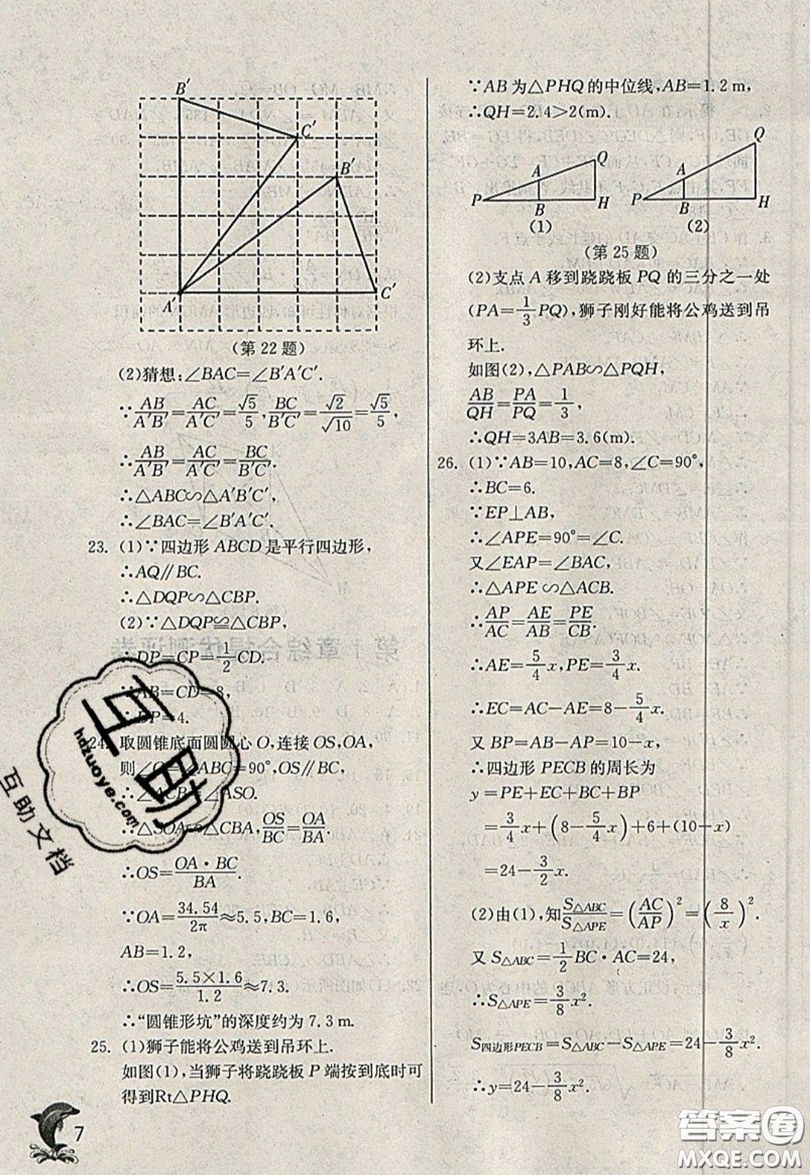 B′
C′
B′
A′
C′
(第22题)
(2)猜想:∠BAC=∠B′A′C′.
∵AB/A′B′=AC/A′C′=√5/5,BC/B′C′=√2/√10=√5/5,
∴AB/A′B′=AC/A′C′=BC/B′C′.
∴△ABC∽△A′B′C′.
∴∠BAC=∠B′A′C′.
23. (1)∵四边形ABCD是平行四边形,
∴AQ∥BC.
∴△DQP∽△CBP.
(2)∵△DQP≌△CBP,
∴DP=CP=1/2CD.
∵AB=CD=8,
∴DP=4.
24. 取圆锥底面圆圆心O,连接OS,OA,
则∠O=∠ABC=90°,OS∥BC.
∴∠ACB=∠ASO.
∴△SOA∽△CBA,OS/BC=OA/BA.
∴OS=OA·BC/BA.
∵OA=34.54/2π≈5.5,BC=1.6,
AB=1.2,
∴OS=5.5×1.6/1.2≈7.3.
∴“圆锥形坑”的深度约为7.3 m.
25. (1)狮子能将公鸡送到吊环上.
如图(1),当狮子将跷跷板P端按到底时可
得到Rt△PHQ.
7
∵AB为△PHQ的中位线,AB=1.2 m,
∴QH=2.4>2(m).
Q
A
P
B
H
(1)
Q
A
P
B
H
(2)
(第25题)
(2)支点A移到跷跷板PQ的三分之一处
(PA=1/3PQ),狮子刚好能将公鸡送到吊
环上.
如图(2),△PAB∽△PQH,
AB/QH=PA/PQ=1/3,
∴QH=3AB=3.6(m).
26. (1)∵AB=10,AC=8,∠C=90°,
∴BC=6.
∵EP⊥AB,
∴∠APE=90°=∠C.
又∠EAP=∠BAC,
∴△APE∽△ACB.
∴AP/AC=AE/AB=PE/CB.
∴AE=5/4x,PE=3/4x.
∴EC=AC-AE=8-5/4x.
又BP=AB-AP=10-x,
∴四边形PECB的周长为
y=PE+EC+BC+BP
=3/4x+(8-5/4x)+6+(10-x)
=24-3/2x.
(2)由(1),知S△ABC/S△APE=(AC/AP)²=(8/x)².
又S△ABC=1/2BC·AC=24,
∴S△APE=3/8x².
S四边形PECB=S△ABC-S△APE=24-3/8x².
∴y=24-3/8x².
互助
hdzuoye.com
互助文档
答案圈
MXQE.COM